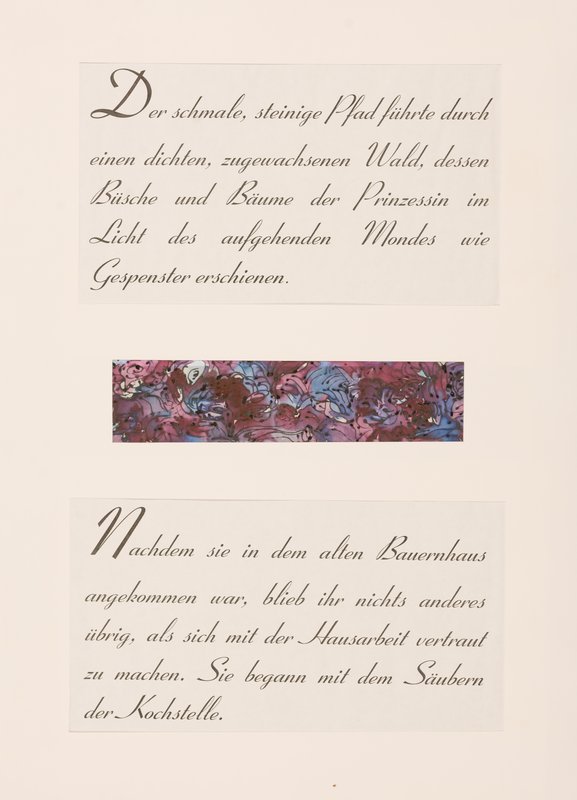 Der schmale, steinige Pfad führte durch
einen dichten, zugewachsenen Wald, dessen
Büsche und Bäume der Prinzessin im
Licht des aufgehenden Mondes wie
Gespenster erschienen.
Nachdem sie in dem alten Bauernhaus
angekommen war, blieb ihr nichts anderes
übrig, als sich mit der Hausarbeit vertraut
zu machen. Sie begann mit dem Säubern
der Kochstelle.